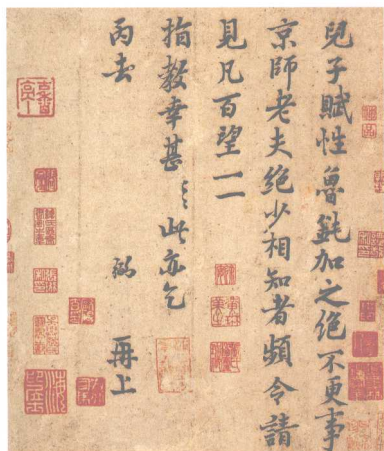 兒子賦性魯鈍加之絶不更事
京師老夫絶少相知者頻令請
見凡百望一一
指教幸甚〻〻此亦乞
丙去 弼 再上